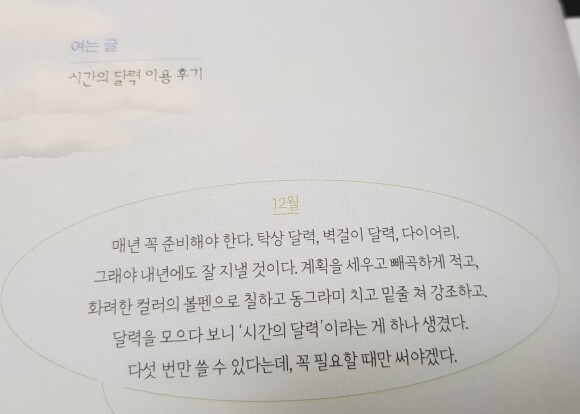 여는 글
시간의 달력 이용 후기
12월
매년 꼭 준비해야 한다. 탁상 달력, 벽걸이 달력, 다이어리.
그래야 내년에도 잘 지낼 것이다. 계획을 세우고 빼곡하게 적고,
화려한 컬러의 볼펜으로 칠하고 동그라미 치고 밑줄 쳐 강조하고.
달력을 모으다 보니 ‘시간의 달력’이라는 게 하나 생겼다.
다섯 번만 쓸 수 있다는데, 꼭 필요할 때만 써야겠다.